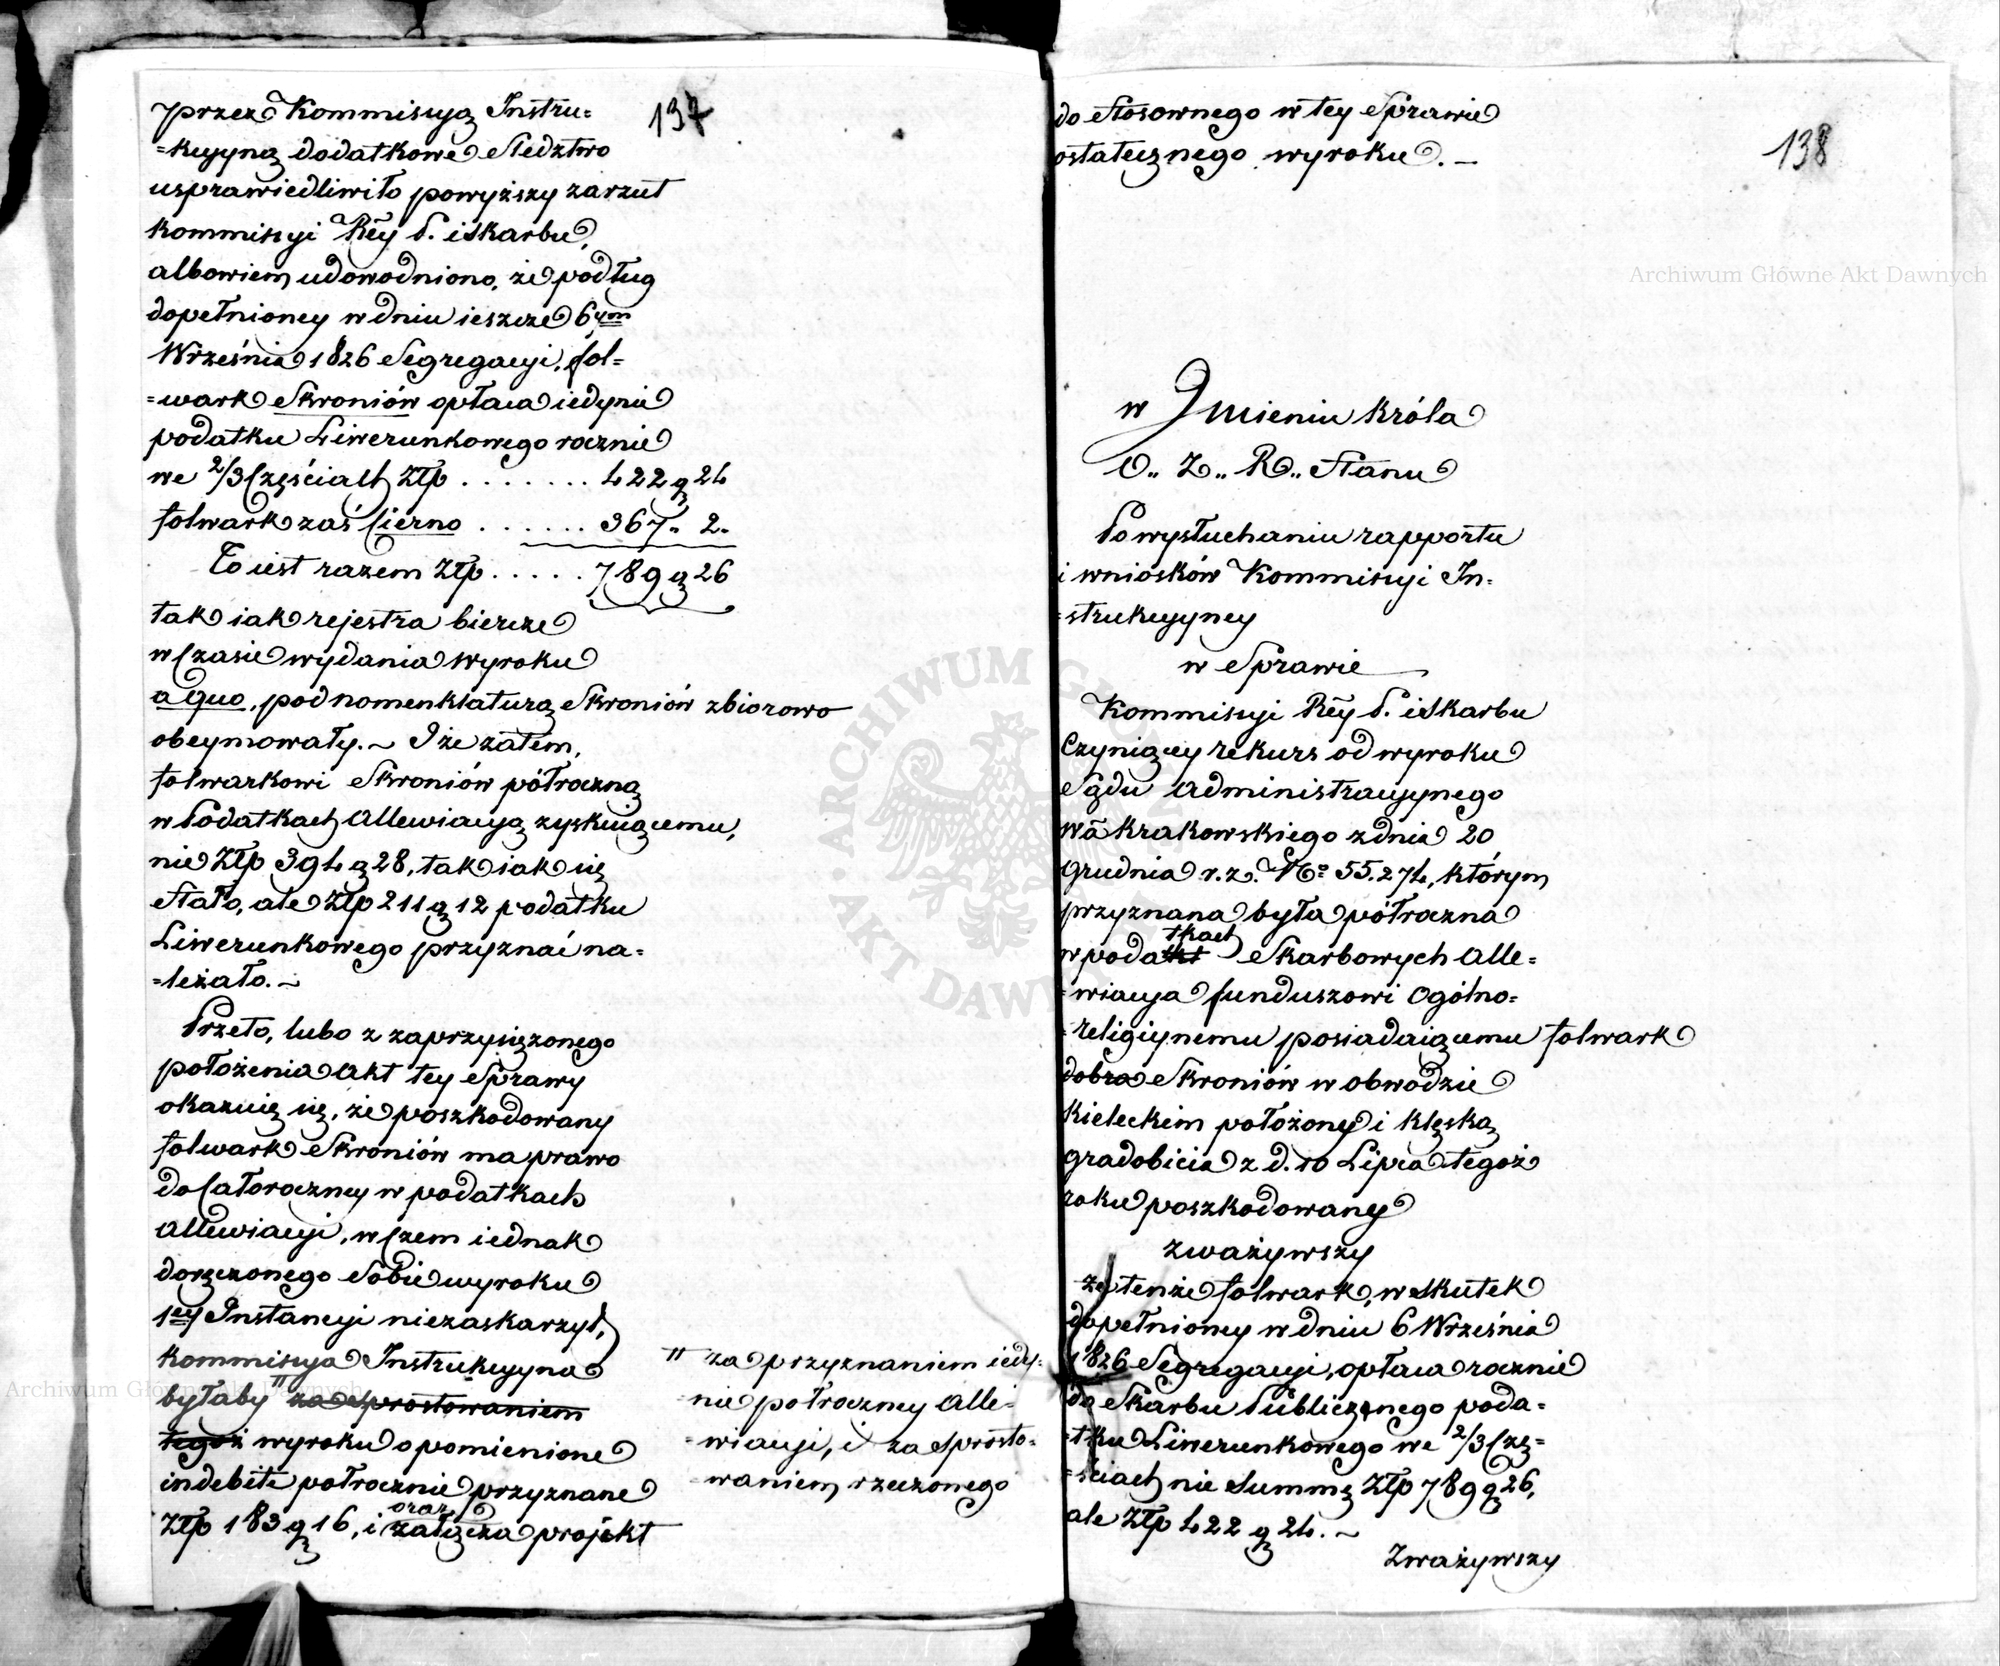 137
przez Kommisyą Instru=
=kcyyną dodatkowe Sledztwo
usprawiedliwiło powyższy zarzut
Kommisyi Rey P. i Skarbu,
albowiem udowodniono, że podług
dopełnioney w dniu ieszcze 6ym
Września 1826 Segregacyi, fol=
=wark Skroniów opłaca iedynie
podatku Liwerunkowego rocznie
we 2/3 Częściach Złp . . . . . . . 422 g 24
folwark zaś Cierno . . . . . . 367 „ 2 „
To iest razem Złp . . . . . 789 g 26
tak iak rejestra biercze
w Czasie wydania wyroku
a quo, pod nomenklaturą Skroniów zbiorowo
obeymowały. ~ I że zatem,
folwarkowi Skroniów półroczną
w Podatkach Allewiacyą zyskuiącemu,
nie Złp 394 g 28, tak iak się
Stało, ale Złp 211 g 12 podatku
Liwerunkowego przyznać na=
=leżało. ~
Przeto, lubo z zaprzysiężonego
położenia Akt tey Sprawy
okazuie się, że poszkodowany
folwark Skroniów ma prawo
do Całoroczney w podatkach
Allewiacyi, w Czem iednak
doręczonego Sobie wyroku
1ey Instancyi niezaskarzył,
Kommisyja Instrukcyyna
byłaby " za Sprostowaniem
tegoż wyroku o pomienione
indebite półrocznie przyznane
Złp 183 g 16, i oraz załącza projekt
" za przyznaniem iedy=
=nie połroczney Alle=
=wiacyi, i za Sprosto=
=waniem rzeczonego
138
do Stosownego w tey Sprawie
ostatecznego wyroku. —
w Imieniu Króla
O.. Z.. R.. Stanu
Po wysłuchaniu rapportu
i wniosków Kommisyi In=
=strukcyyney
w Sprawie
Kommisyi Rey P. i Skarbu
Czyniącey rekurs od wyroku
Sądu Administracyynego
Wa Krakowskiego z dnia 20
Grudnia r. z. No 55.274, którym
przyznana była półroczna
w podatkach Skarbowych Alle=
=wiacya funduszowi Ogólno=
=religiynemu posiadaiącemu folwark
dobra Skroniów w obwodzie
Kieleckim położony i klęską
gradobicia z d. 10 Lipca tegoż
roku poszkodowany
zważywszy
że tenże folwark, w Skutek
dopełnioney w dniu 6 Września
1826 Segregacyi, opłaca rocznie
do Skarbu Publicznego poda=
=tku Liwerunkowego we 2/3 Czę=
=ściach nie Summę Złp 789 g 26,
ale Złp 422 g 24. ~
Zważywszy
Archiwum Główne Akt Dawnych
Archiwum Główne Akt Dawnych
ARCHIWUM GŁÓWNE AKT DAWNYCH